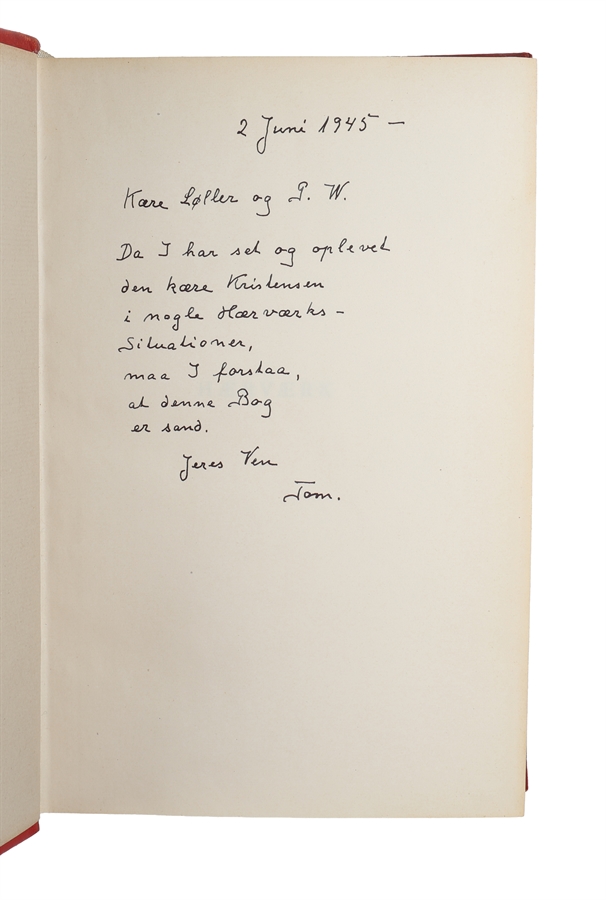 2 Juni 1945 —
Kære Løller og P. W.
Da I har set og oplevet
den kære Kristensen
i nogle Hærværks-
Situationer,
maa I forstaa,
at denne Bog
er sand.
Jeres Ven
Tom.